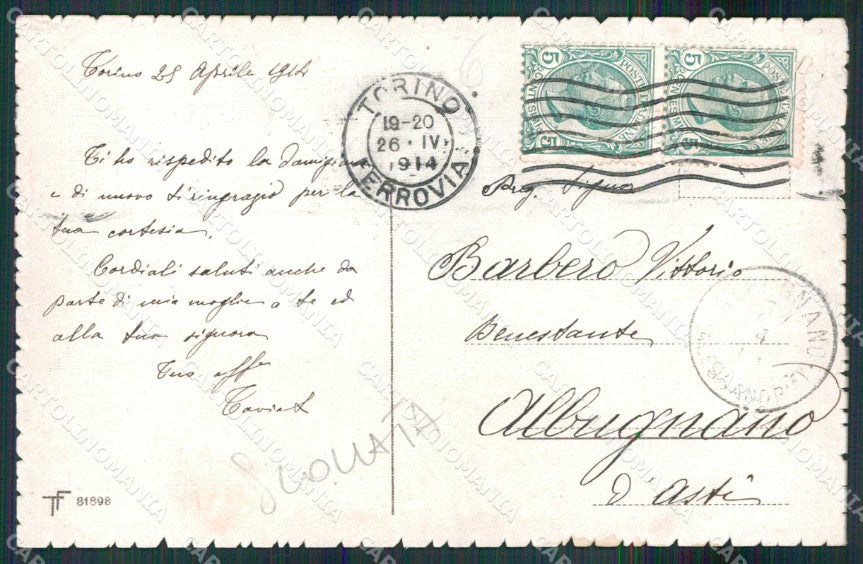 Torino 25 Aprile 1914
Ti ho rispedito la damigiana
e di nuovo ti ringrazio per la
tua cortesia.
Cordiali saluti anche da
parte di mia moglie a te ed
alla tua signora
Tuo aff
TF 81898
SCOLLATA
TORINO
19-20
26 · IV
1914
FERROVIA
5
POSTE ITALIANE
5
5
POSTE ITALIANE
5
Preg. Signor
Barbero Vittorio
Benestante
Albugnano
d'Asti
CARTOLINOMANIA